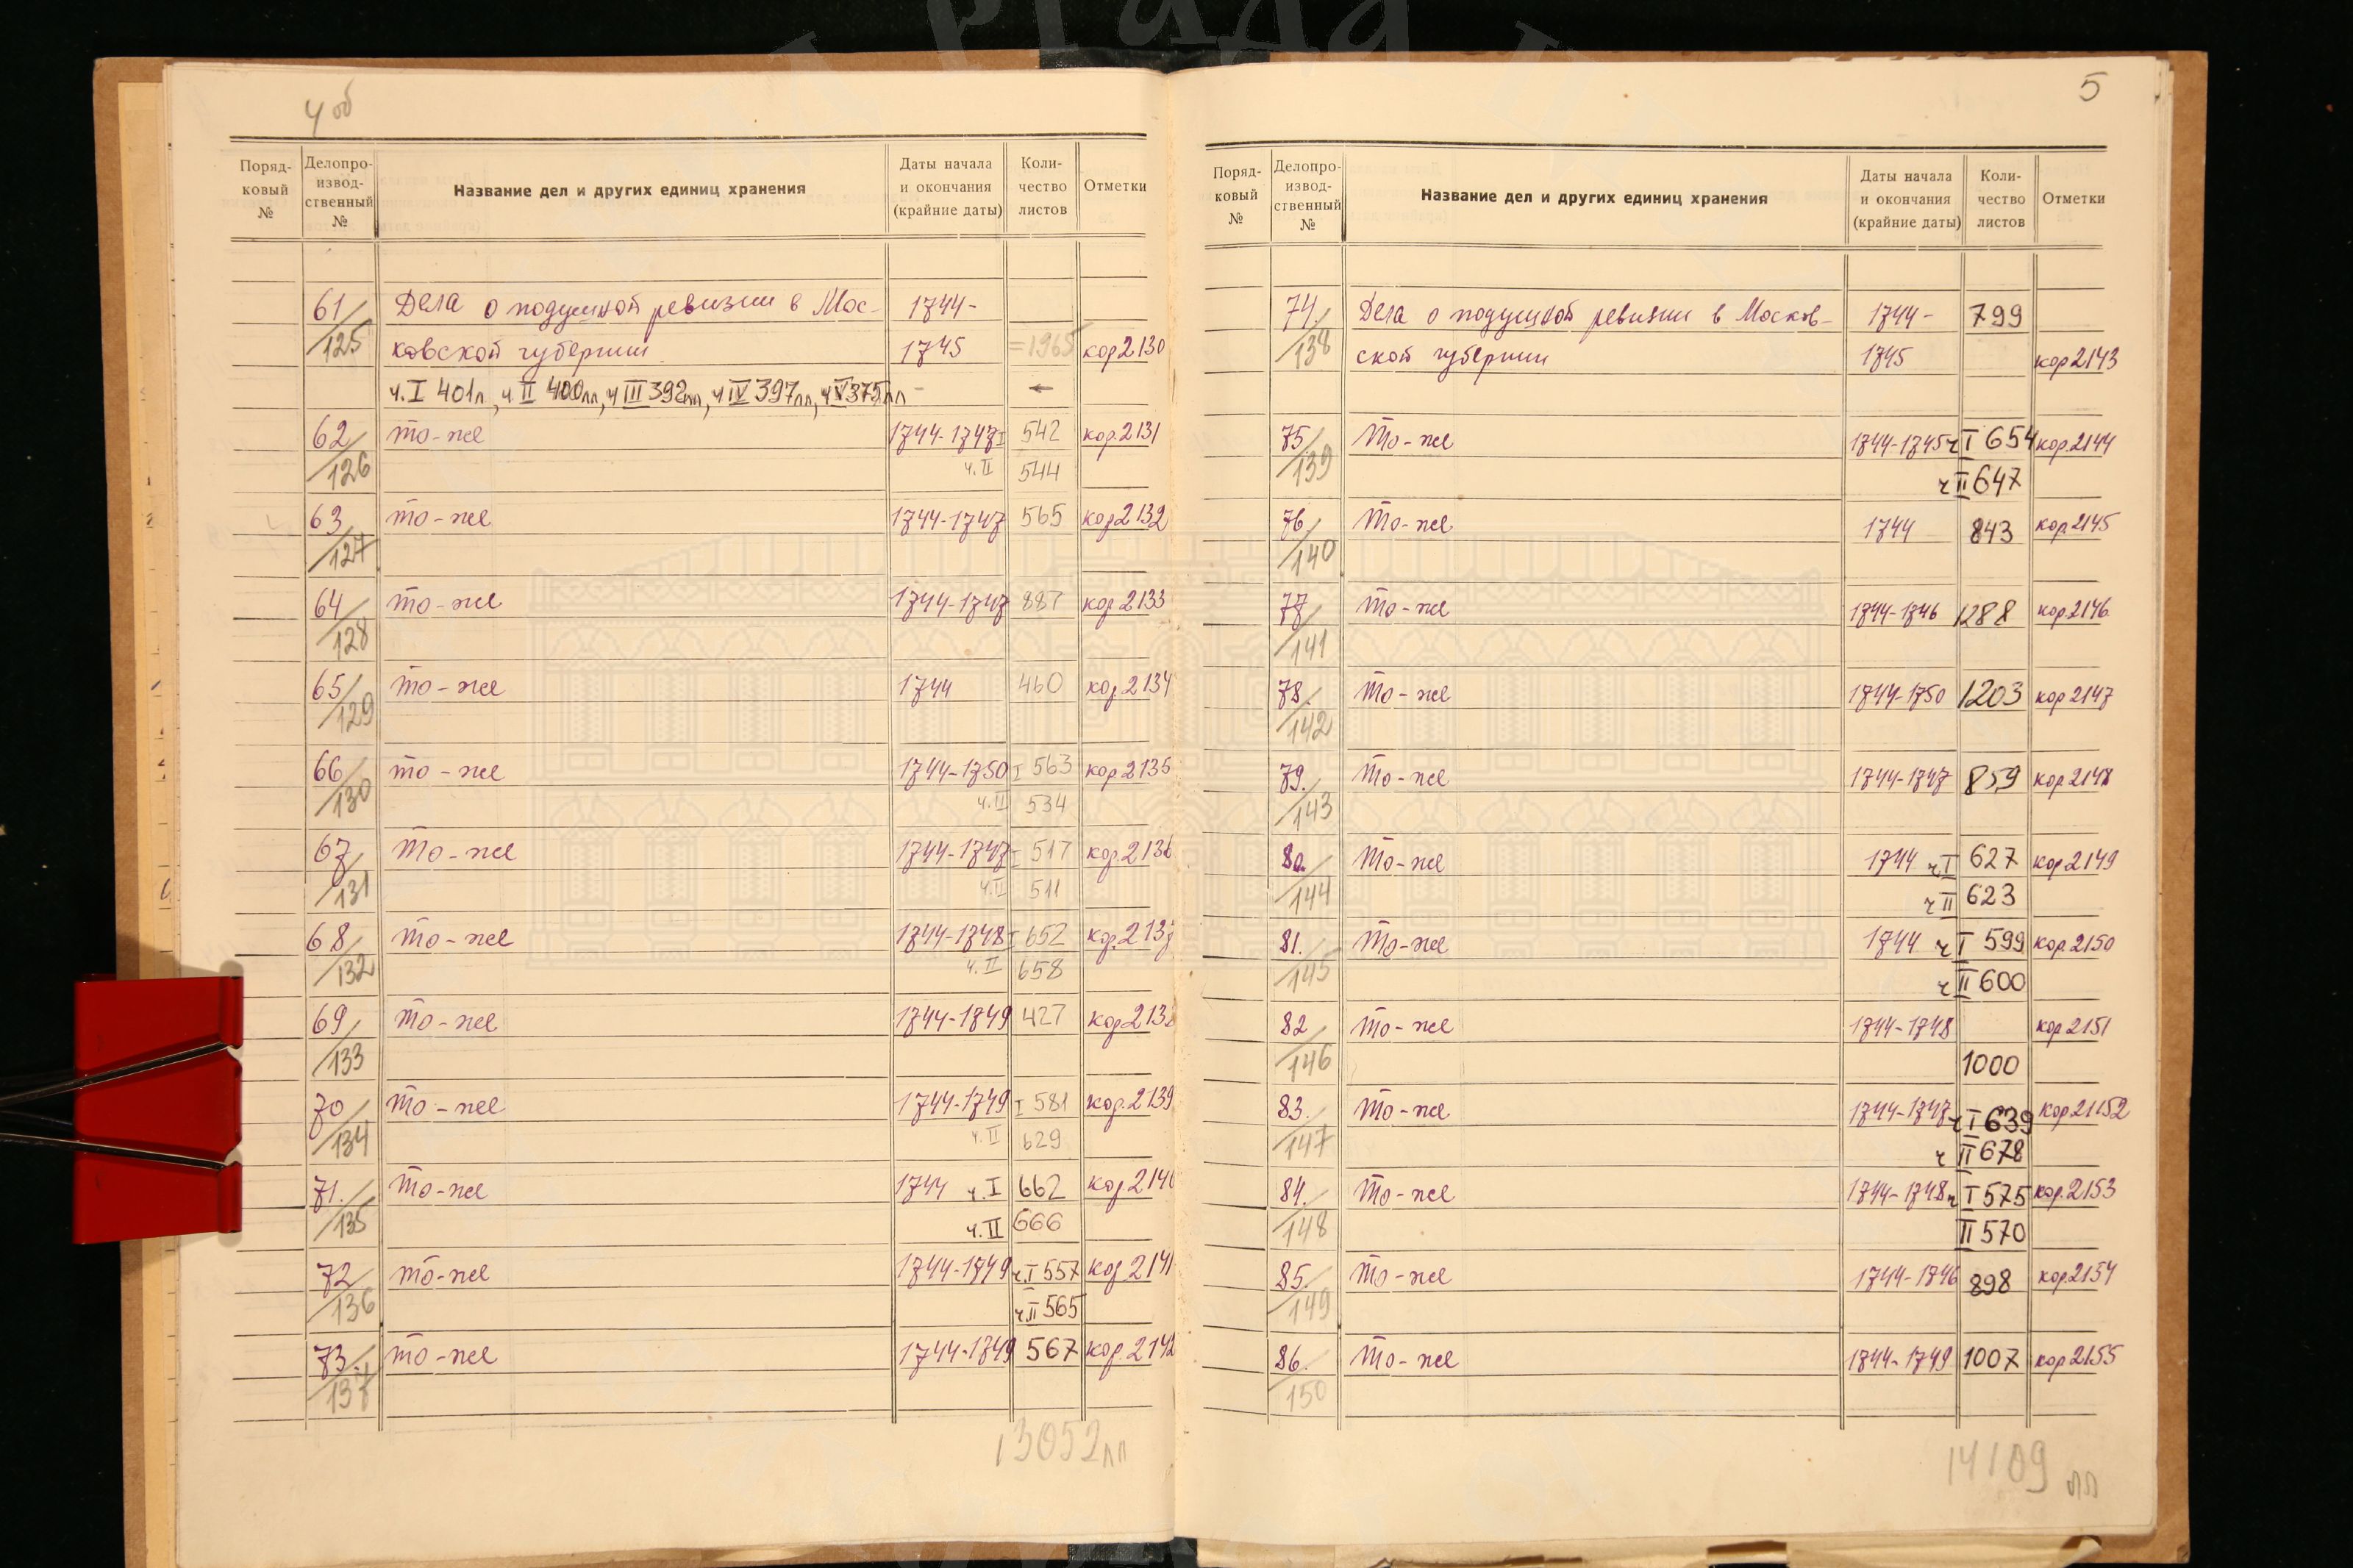 4 об
Поряд-ковый №
Делопро-извод-ственный №
Название дел и других единиц хранения
Даты начала и окончания (крайние даты)
Коли-чество листов
Отметки
61/125 Дела о подушной ревизии в Мос- 1744-
ковской губернии 1745 =1965 кор 2130
ч. I 401л, ч II 400лл, ч III 392лл, ч IV 397лл, ч V 375лл
62/126 то-же 1744-1747 I 542 кор. 2131
ч. II 544
63/127 то-же 1744-1747 565 кор 2132
64/128 то-же 1744-1747 887 кор 2133
65/129 то-же 1744 460 кор. 2134
66/130 то-же 1744-1750 I 563 кор 2135
ч. II 534
67/131 то-же 1744-1747 I 517 кор. 2136
ч. II 511
68/132 то-же 1744-1748 I 652 кор. 2137
ч. II 658
69/133 то-же 1744-1749 427 кор. 2138
70/134 то-же 1744-1749 I 581 кор. 2139
ч. II 629
71./135 то-же 1744 ч. I 662 кор. 2140
ч. II 666
72/136 то-же 1744-1749 ч. I 557 кор. 2141
ч. II 565
73/137 то-же 1744-1749 567 кор. 2142
13052 лл
5
Поряд-ковый №
Делопро-извод-ственный №
Название дел и других единиц хранения
Даты начала и окончания (крайние даты)
Коли-чество листов
Отметки
74/138 Дела о подушной ревизии в Москов- 1744- 799
ской губернии 1745 кор 2143
75/139 то-же 1744-1745 ч I 654 кор. 2144
ч II 647
76/140 то-же 1744 843 кор 2145
77/141 то-же 1744-1746 1288 кор 2146
78./142 то-же 1744-1750 1203 кор 2147
79./143 то-же 1744-1747 859 кор 2148
80./144 то-же 1744 ч I 627 кор 2149
ч II 623
81./145 то-же 1744 ч I 599 кор 2150
ч II 600
82/146 то-же 1744-1748 кор 2151
1000
83./147 то-же 1744-1747 ч I 639 кор 21152
ч II 678
84./148 то-же 1744-1748 ч I 575 кор. 2153
II 570
85./149 то-же 1744-1746 898 кор. 2154
86./150 то-же 1744-1749 1007 кор 2155
14109 лл